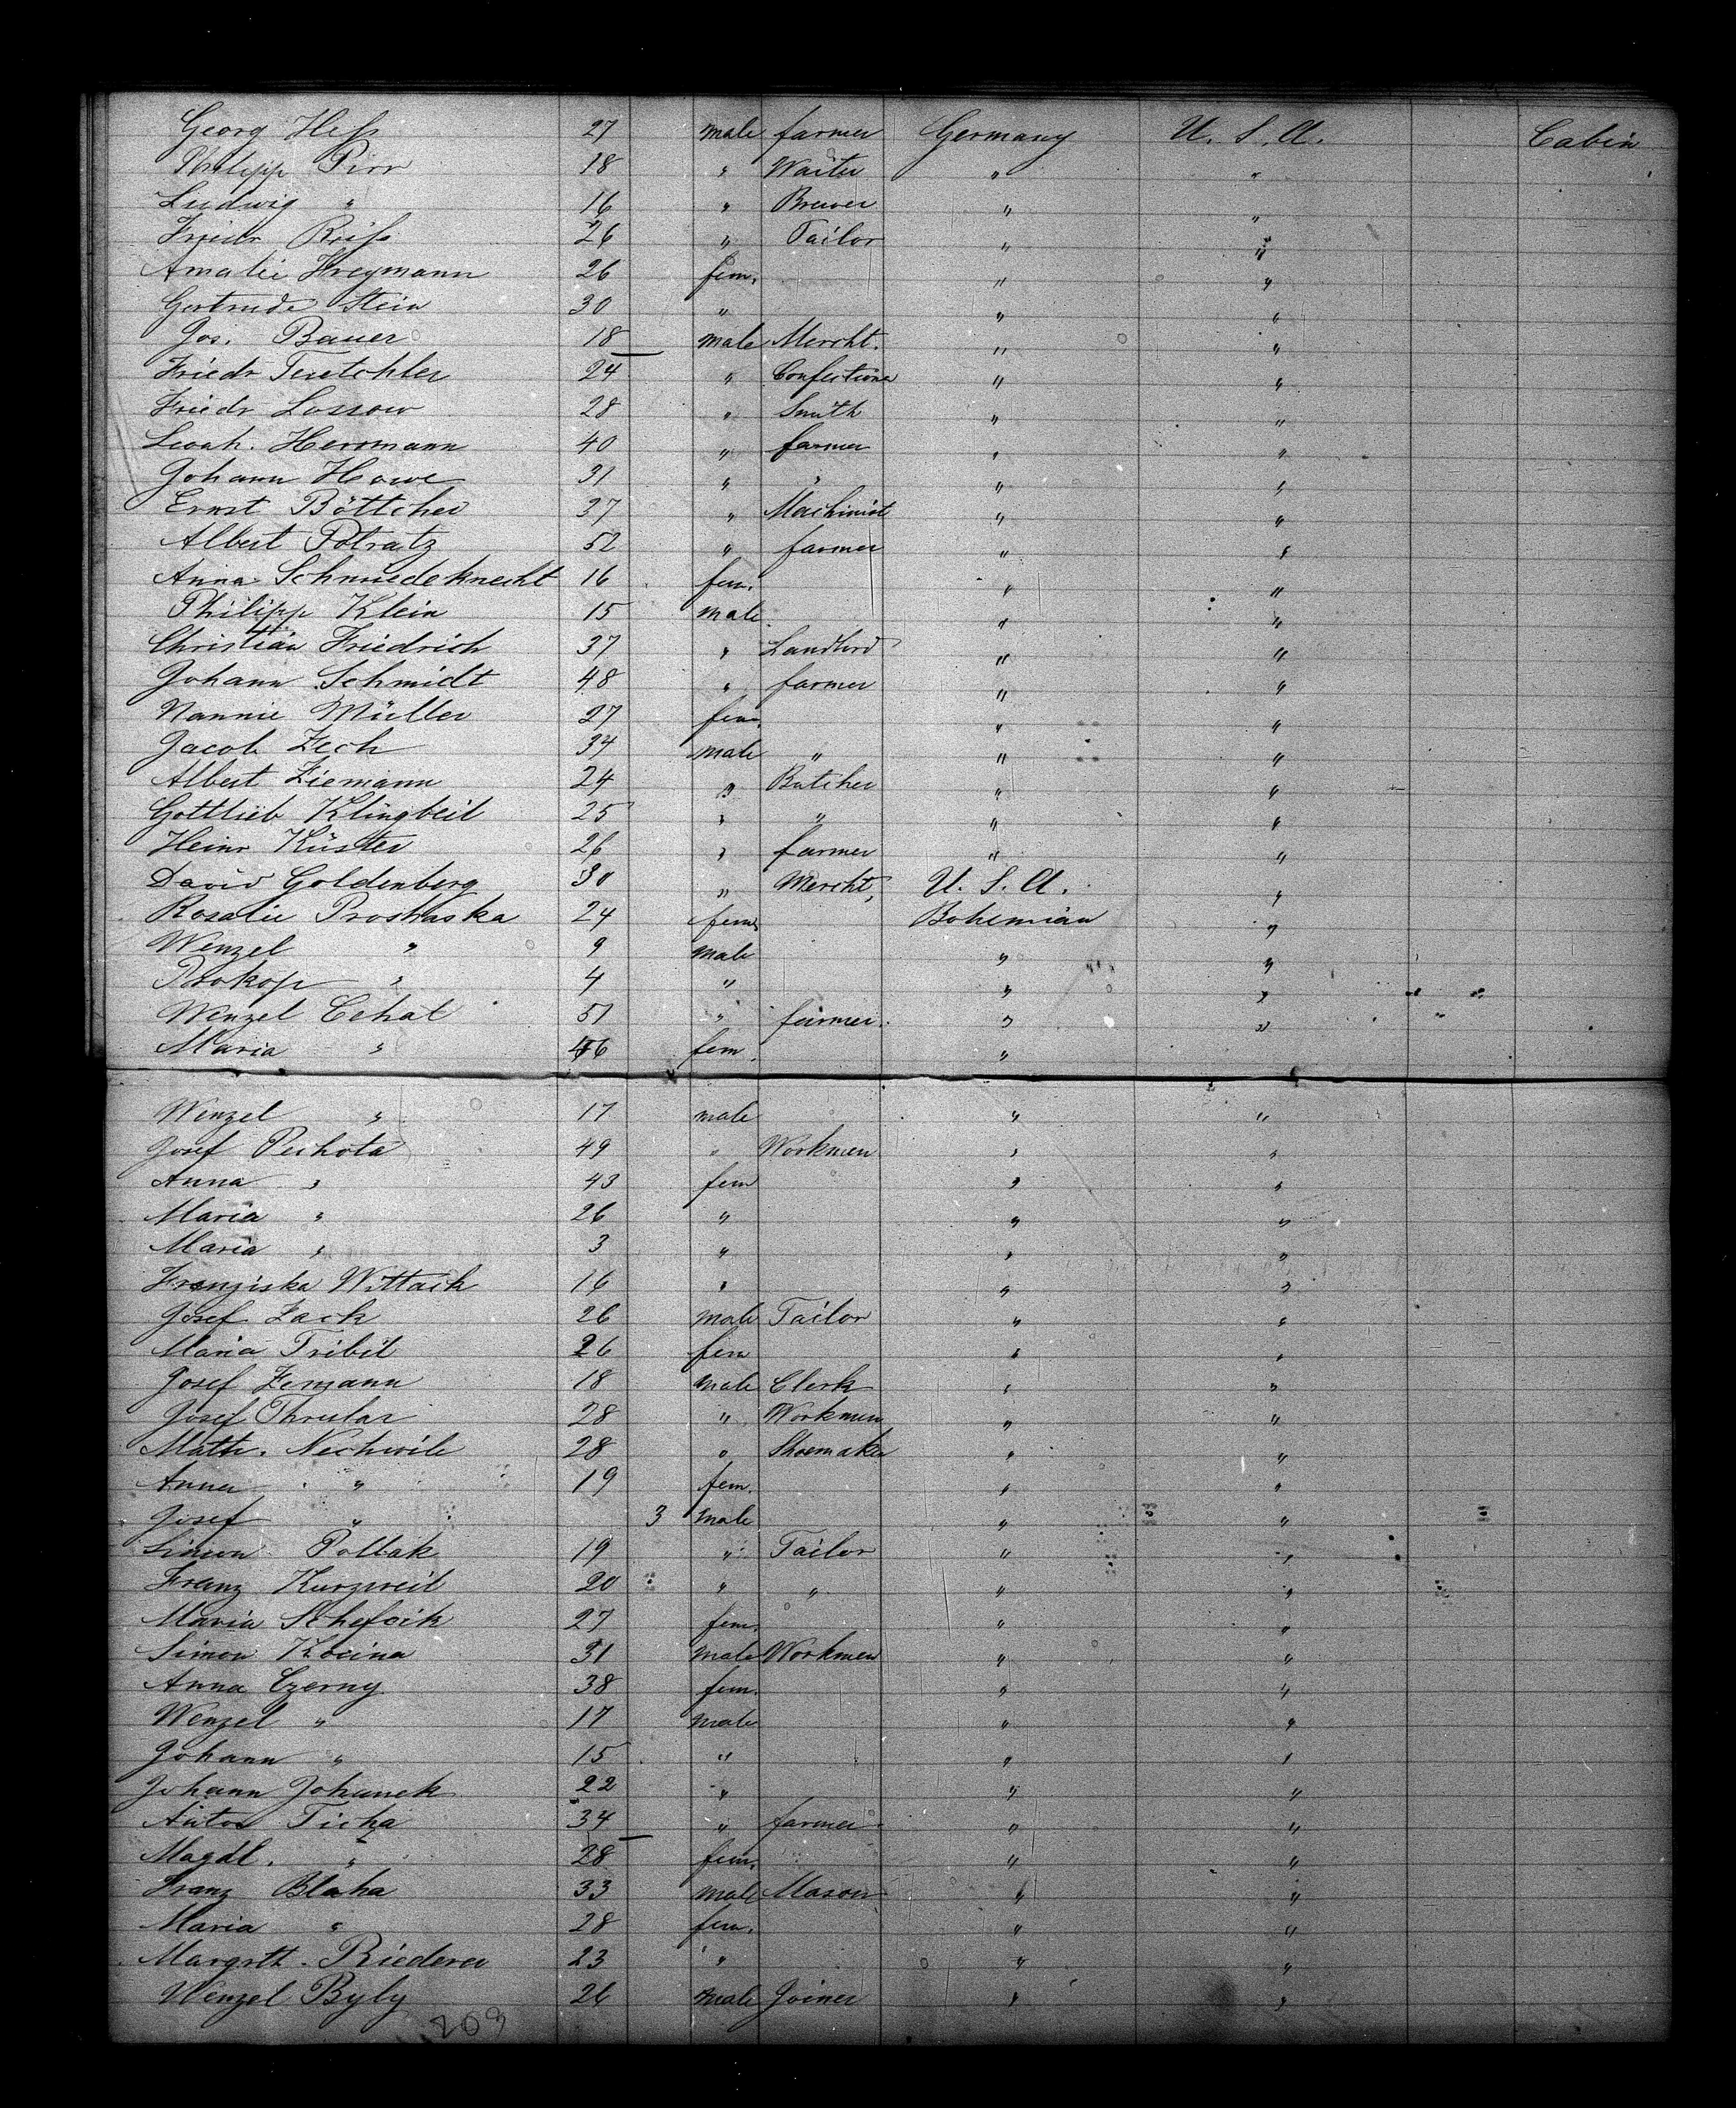 Georg Heß 27 male farmer Germany U. S. A. Cabin
Philipp Pirr 18 " Waiter " "
Ludwig " 16 " Brewer " "
Friedr Reiß 26 " Tailor " "
Amalie Freymann 26 fem. " "
Gertrude Stein 30 " " "
Jos. Bauer 18 male Mercht. " "
Friedr Teutchler 24 " Confectioner " "
Friedr Lossow 28 " Smith " "
Herrmann 40 " farmer " "
Johann Howe 31 " " " "
Ernst Böttcher 37 " Machinist " "
Albert Potratz 52 " farmer " "
Anna Schmiedeknecht 16 fem. " "
Philipp Klein 15 male " "
Christian Friedrich 37 " Landlord " "
Johann Schmidt 48 " farmer " "
Nannie Müller 27 fem. " "
Jacob Zech 34 male " " "
Albert Ziemann 24 " Butcher " "
Gottlieb Klingbeil 25 " " " "
Heinr Küster 26 " farmer " "
David Goldenberg 30 " Mercht, U. S. A. "
Rosalie Proshaska 24 fem. Bohemian "
Wenzel " 9 male " "
Prokop " 4 " " "
Wenzel Cehal 51 " farmer " "
Maria " 46 fem. "
Wenzel " 17 male " "
Josef Pechota 49 " Workmen " "
Anna " 43 fem " "
Maria " 26 " " "
Maria " 3 " " "
Franziska Wittach 16 " " "
Josef Zack 26 male Tailor " "
Maria Tribil 26 fem " "
Josef Zemann 18 male Clerk " "
Josef 28 " Workmen " "
Math. Nechwile 28 " Shoemaker " "
Anna " 19 fem. " "
Josef " 3 male " "
Simon Pollak 19 " Tailor " "
Franz Kurzweil 20 " " " "
Maria Schefcik 27 fem. " "
Simon Kocina 31 male Workmen " "
Anna Czerny 38 fem. " "
Wenzel " 17 male " "
Johann " 15 " " "
Johann Johanek 22 " " "
Anton Ticha 34 " farmer " "
Magdl. " 28 fem. " "
Franz Blaha 33 male Mason " "
Maria " 28 fem. " "
Margrtt. Riederer 23 " " "
Wenzel Byly 26 male Joiner " "
209